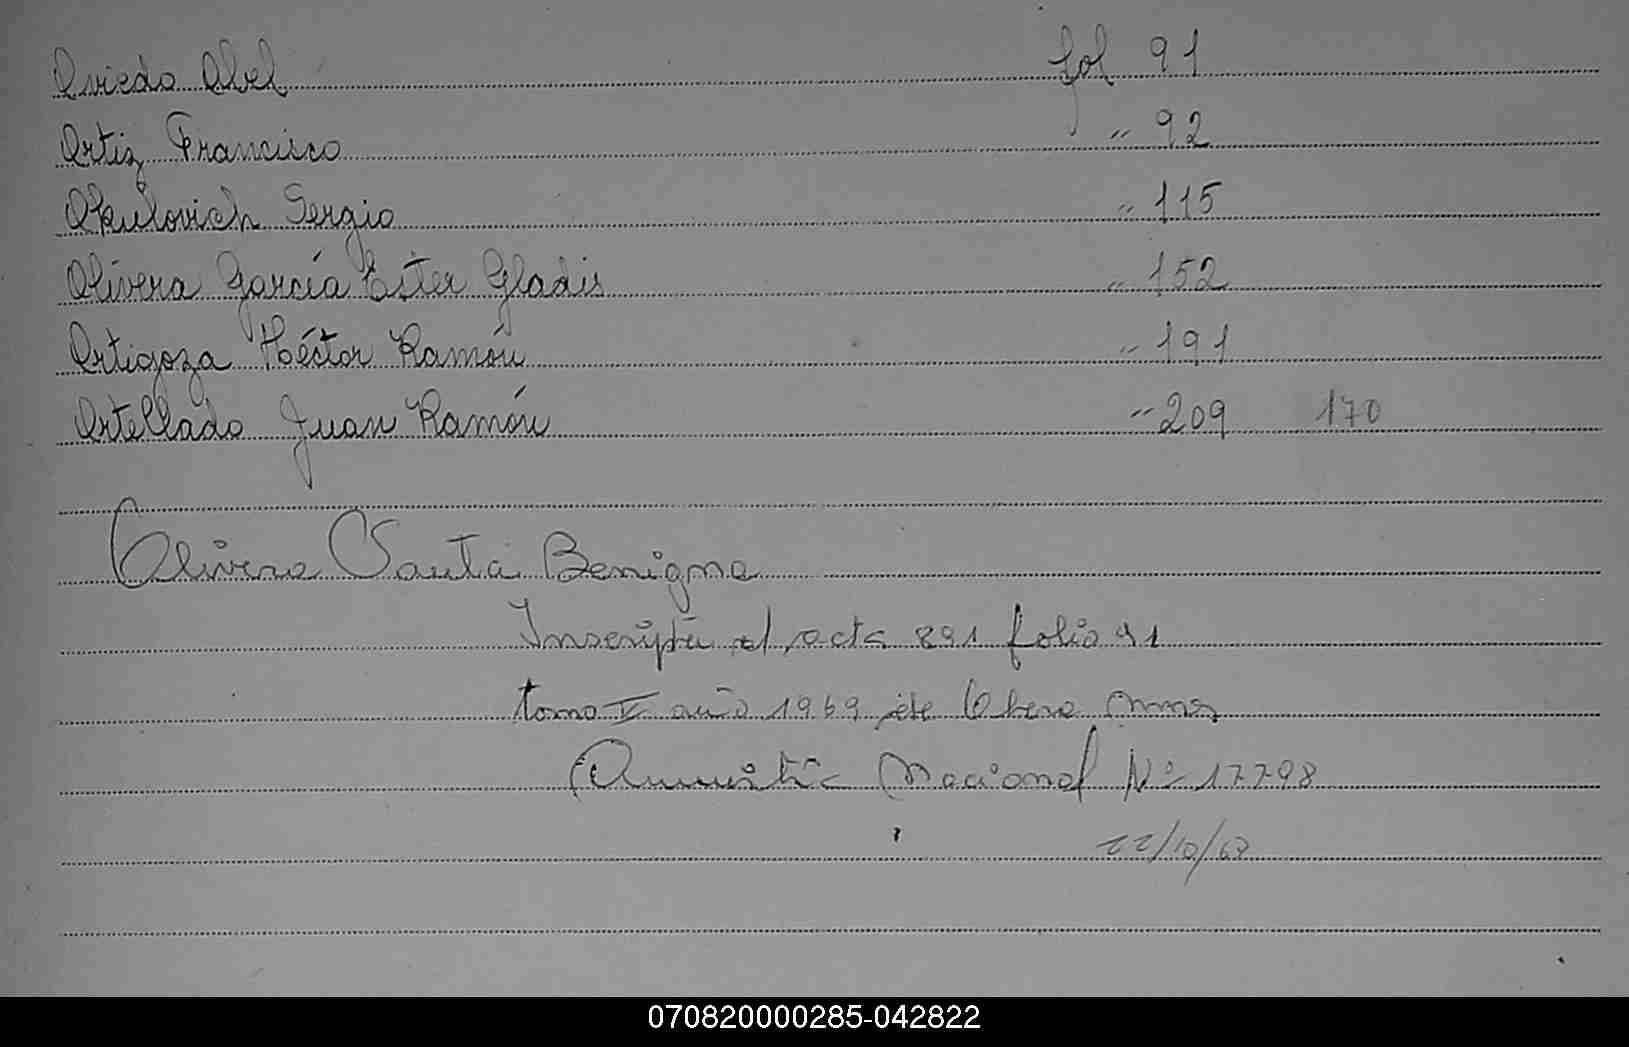 Oviedo Abel fol 91
Ortiz Francisco " 92
Okulovich Sergio " 115
Olivera García Ester Gladis " 152
Ortigoza Héctor Ramón " 191
Ortellado Juan Ramón " 209 170
Olivera Santa Benigna
Inscripta al acta 891 folio 91
tomo V año 1969 de Obera Mnes
Amnistía Nacional Nº 17798
22/10/69
070820000285-042822